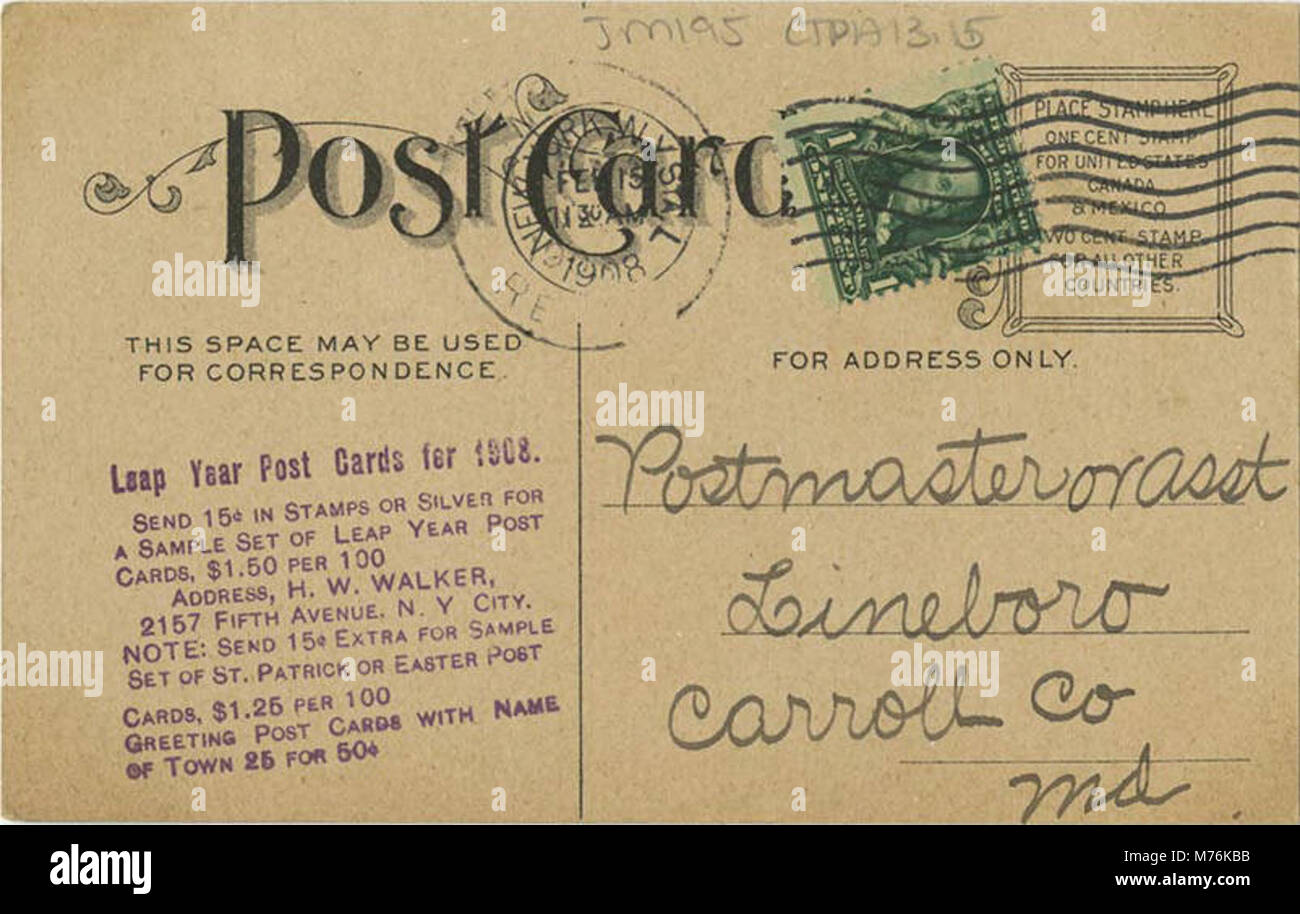 JM195 CTPA13.15
Post Card
NEW YORK, N.Y. STA. L
FEB 15
11 30 AM
1908
RE
PLACE STAMP HERE
ONE CENT STAMP
FOR UNITED STATES
CANADA
& MEXICO
TWO CENT STAMP
FOR ALL OTHER
COUNTRIES.
THIS SPACE MAY BE USED
FOR CORRESPONDENCE.
FOR ADDRESS ONLY.
Leap Year Post Cards for 1908.
SEND 15¢ IN STAMPS OR SILVER FOR
A SAMPLE SET OF LEAP YEAR POST
CARDS, $1.50 PER 100
ADDRESS, H. W. WALKER,
2157 FIFTH AVENUE, N. Y CITY.
NOTE: SEND 15¢ EXTRA FOR SAMPLE
SET OF ST. PATRICK OR EASTER POST
CARDS, $1.25 PER 100
GREETING POST CARDS WITH NAME
OF TOWN 25 FOR 50¢
Postmaster or Asst
Lineboro
Carroll Co
Md.
alamy
alamy
Image ID: M76KBB
www.alamy.com